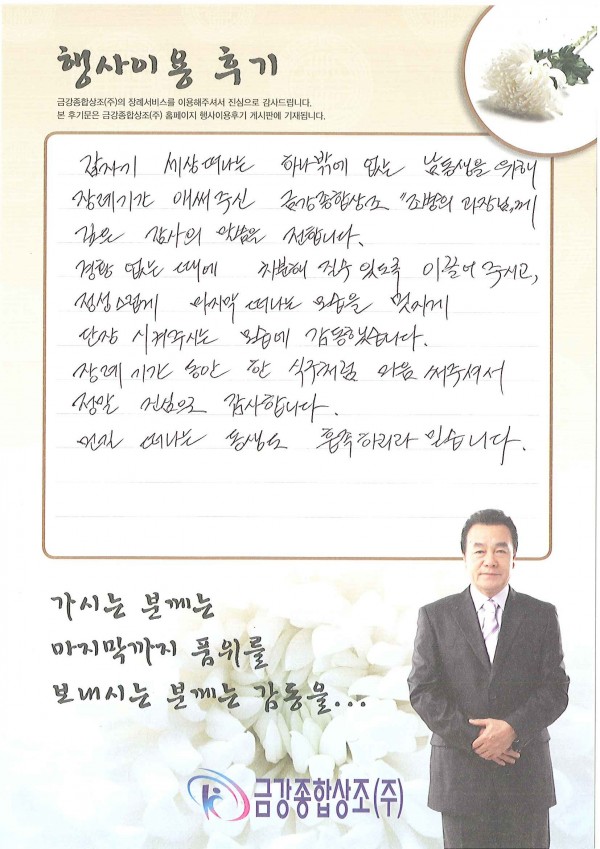 행사이용 후기
금강종합상조(주)의 장례서비스를 이용해주셔서 진심으로 감사드립니다.
본 후기문은 금강종합상조(주) 홈페이지 행사이용후기 게시판에 기재됩니다.
갑자기 세상 떠나는 하나밖에 없는 남동생을 위해
장례기간 애써주신 금강종합상조 "조병의 과장님"께
깊은 감사의 말씀을 전합니다.
경황 없는 때에 차분해 질수 있도록 이끌어 주시고,
정성스럽게 마지막 떠나는 모습을 멋지게
단장 시켜주시는 모습에 감동했습니다.
장례 기간 동안 한 식구처럼 마음 써주셔서
정말 진심으로 감사합니다.
먼길 떠나는 동생도 흡족하리라 믿습니다.
가시는 분께는
마지막까지 품위를
보내시는 분께는 감동을...
금강종합상조(주)